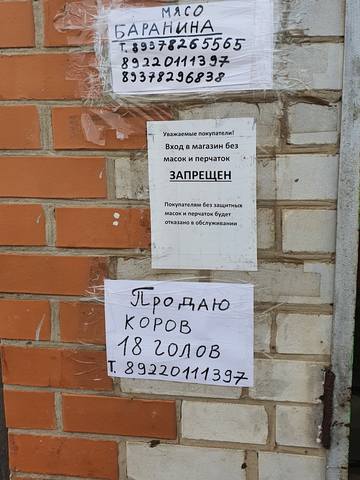 МЯСО
БАРАНИНА
Т. 89378265565
89220111397
89378296838
Уважаемые покупатели!
Вход в магазин без
масок и перчаток
ЗАПРЕЩЕН
Покупателям без защитных
масок и перчаток будет
отказано в обслуживании
Продаю
коров
18 голов
Т. 89220111397